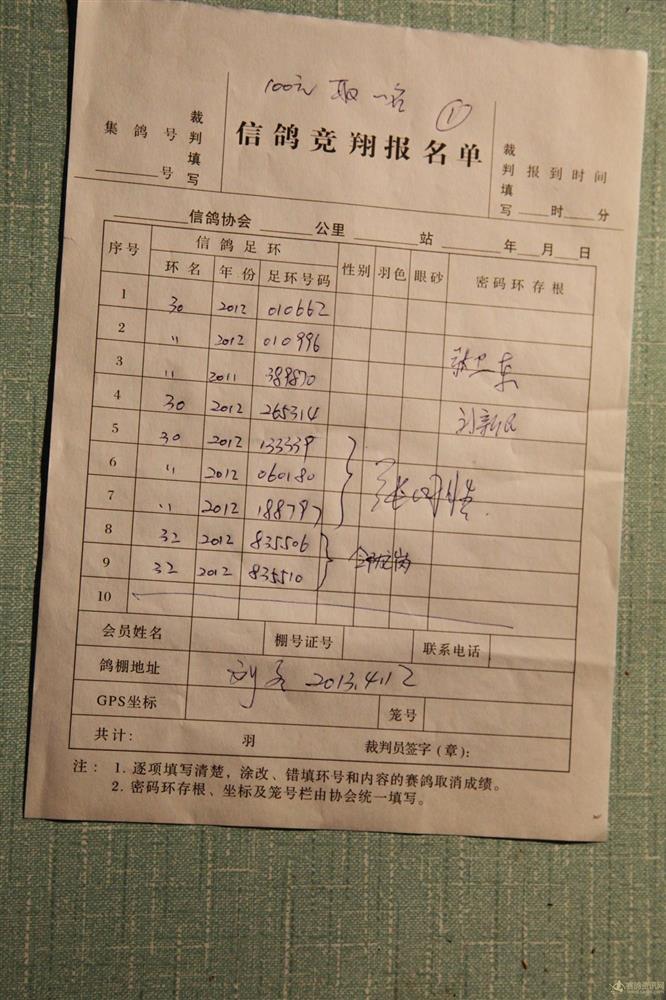 100元 取一名 ①
集鸽号 裁判填写
号
信鸽竞翔报名单
裁判填写 报到时间
时 分
信鸽协会 公里 站 年 月 日
序号 信鸽足环 性别 羽色 眼砂 密码环存根
环名 年份 足环号码
1 30 2012 010662
2 〃 2012 010996
3 〃 2011 389870
4 30 2012 265314 刘新民
5 30 2012 133339
6 〃 2012 060180
7 〃 2012 188797
8 32 2012 835506
9 32 2012 835510
10
会员姓名 棚号证号 联系电话
鸽棚地址 2013.4.12
GPS坐标 笼号
共计: 羽 裁判员签字(章):
注: 1. 逐项填写清楚，涂改、错填环号和内容的赛鸽取消成绩。
2. 密码环存根、坐标及笼号栏由协会统一填写。